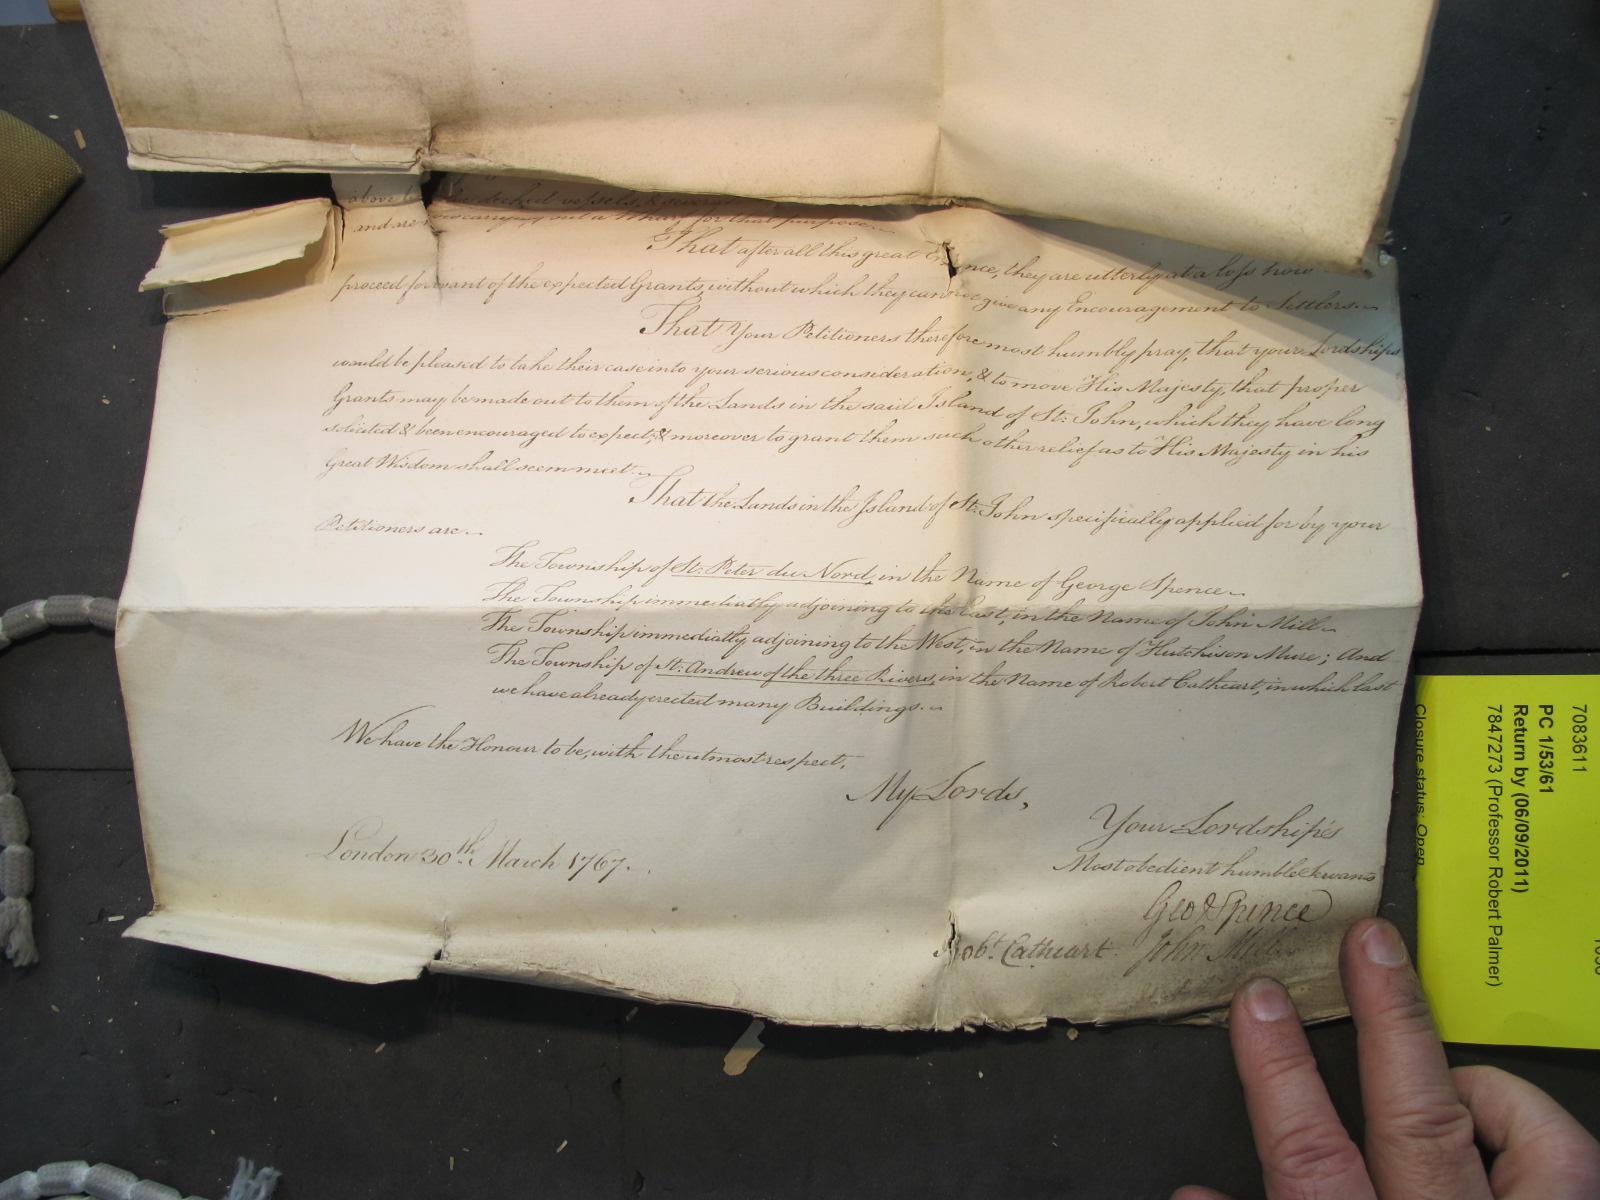 decked vessels, & several
and are now carrying out a What, for that purpose.
That after all this great nce, they are utterly at a loss how
proceed for want of the expected Grants, without which they cannot give any Encouragement to Settlers.
That Your Petitioners therefore most humbly pray, that your Lordships
would be pleased to take their case into your serious consideration, & to move His Majesty, that proper
Grants may be made out to them of the Lands in the said Island of St. John, which they have long
solicited & been encouraged to expect; & moreover to grant them such other relief as to His Majesty in his
Great Wisdom shall seem meet.
That the Lands in the Island of St. John specifically applied for by your
Petitioners are.
The Township of St. Peter du Nord, in the Name of George Spence.
The Township immediatly adjoining to the East, in the Name of John Mill.
The Township immediatly adjoining to the West, in the Name of Hutchison Mure; And
The Township of St. Andrew of the three Rivers, in the Name of Robert Cathcart, in which last
we have already erected many Buildings.
We have the Honour to be, with the utmost respect,
My Lords,
Your Lordships
Most obedient humble Servants
London 30th. March 1767.
Geo Spence
Robt. Cathcart John Mill
7083611
PC 1/53/61
Return by (06/09/2011)
7847273 (Professor Robert Palmer)
Closure status: Open